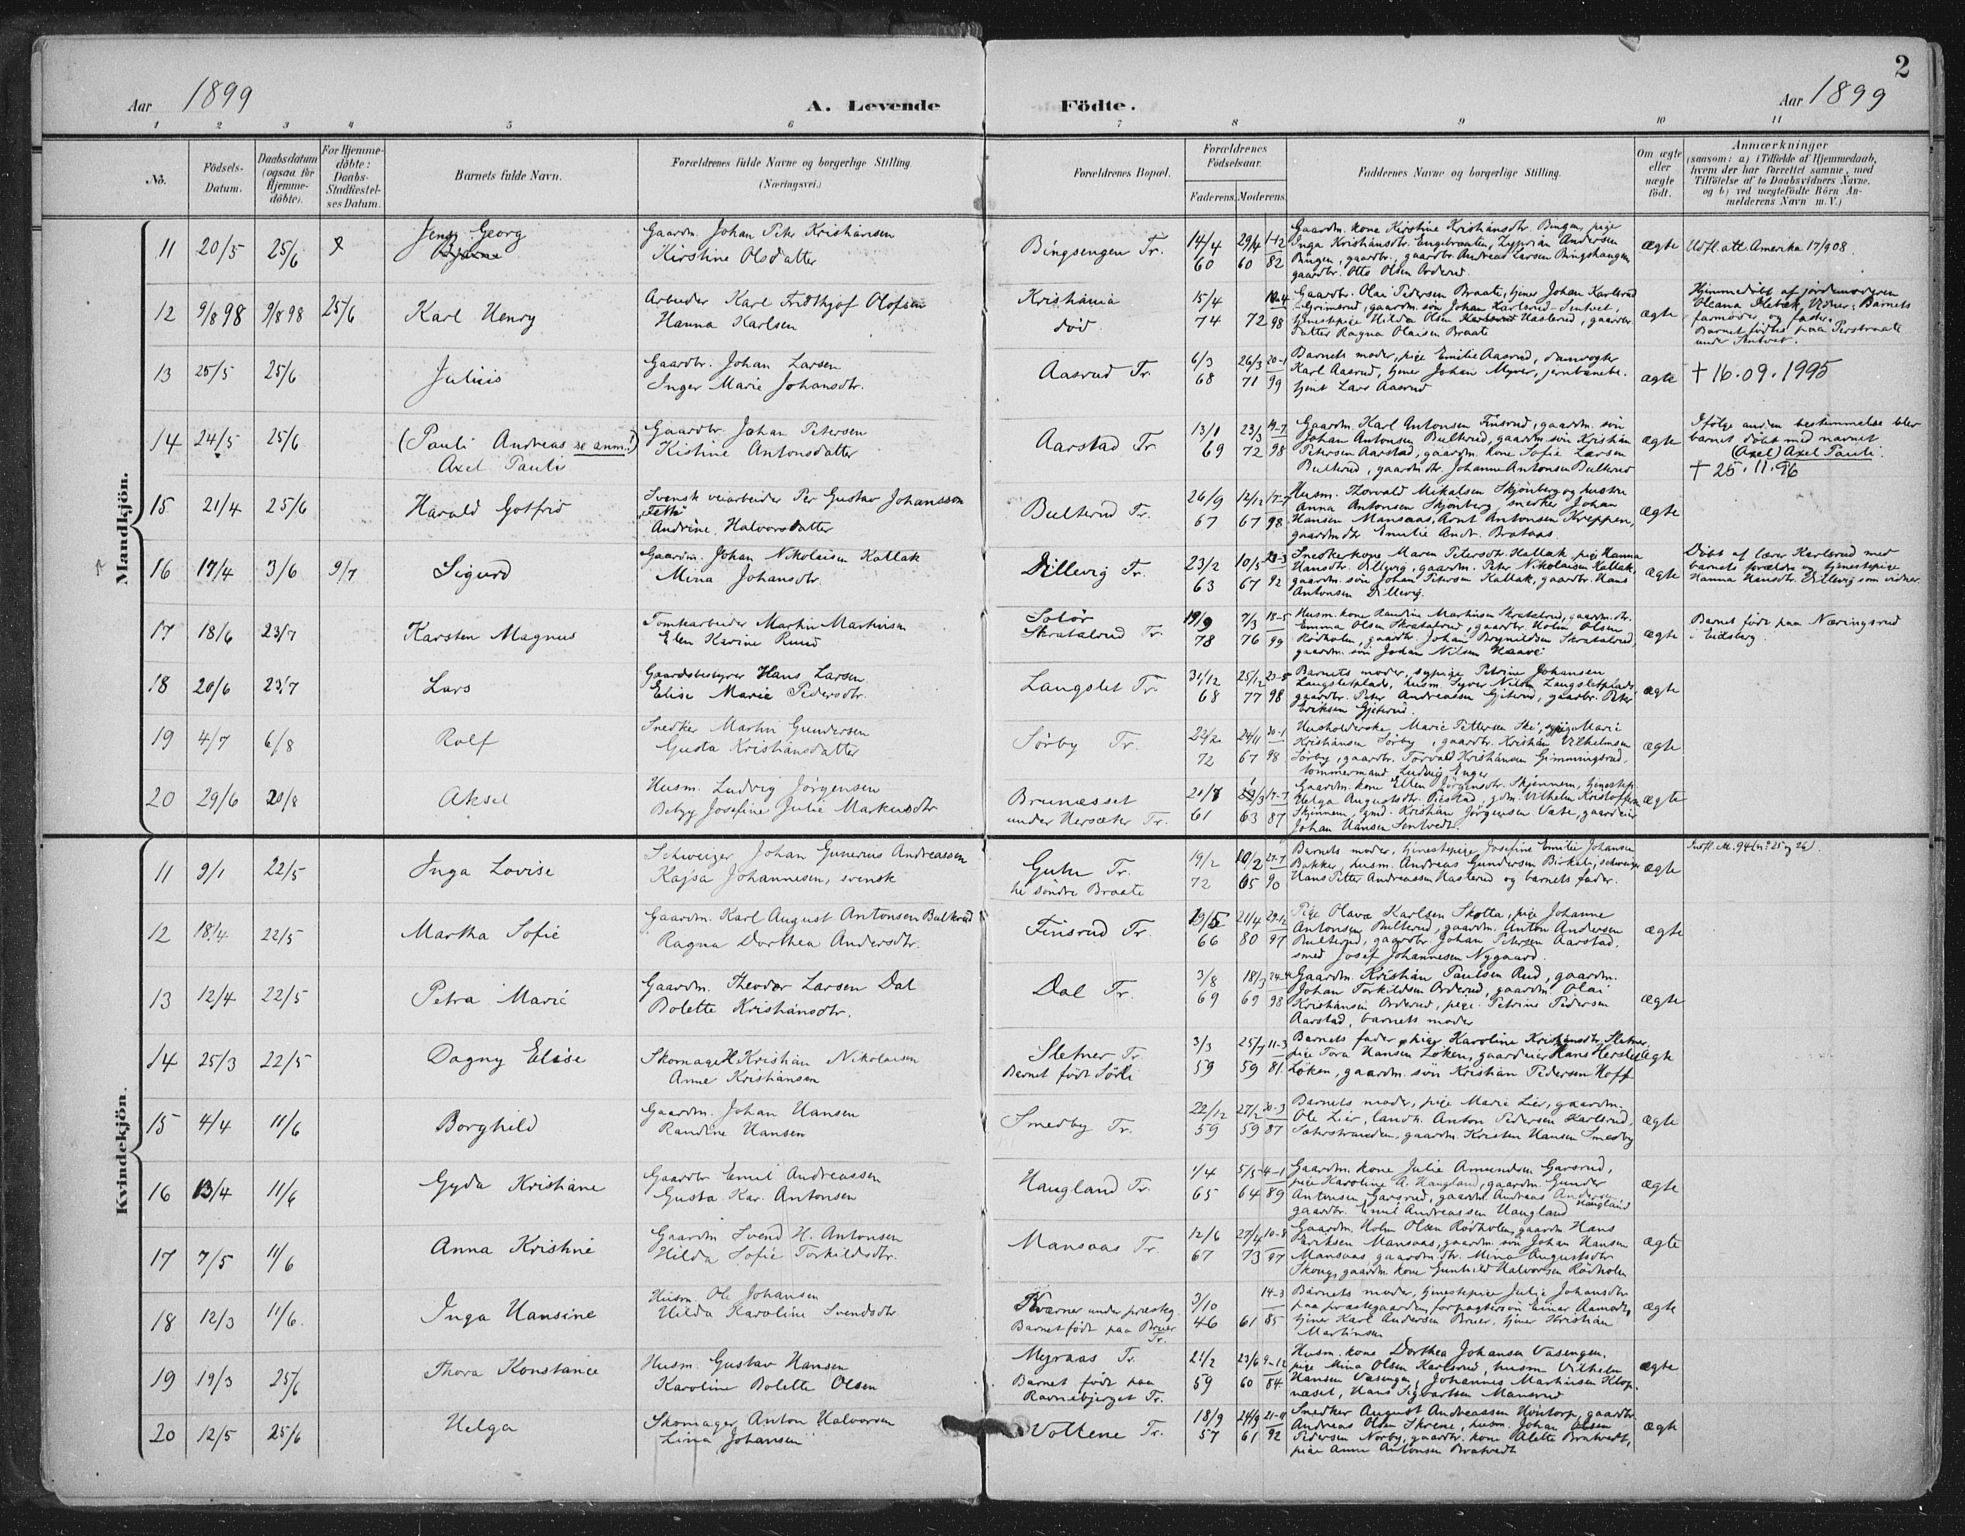 2
Aar 1899 A. Levende Födte. Aar 1899
1 2 3 4 5 6 7 8 9 10 11
No. Födsels-Datum. Daabsdatum (ogsaa for Hjemmedöbte). For Hjemmedöbte: Daabs-Stadfæstelses Datum. Barnets fulde Navn. Forældrenes fulde Navne og borgerlige Stilling (Næringsvei.) Forældrenes Bopæl. Forældrenes Födselsaar. Faderens. Moderens. Faddernes Navne og borgerlige Stilling. Om ægte eller uægte födt. Anmærkninger
(saasom: a) i Tilfælde af Hjemmedaab,
hvem der har forrettet samme, med
Tilföielse af to Daabsvidners Navne,
og b) ved uægtefödte Börn Anmelderens Navn m. V.)
Mandkjön.
11 20/5 25/6 Jens Georg
Gaardm. Johan Peter Kristiansen
Kirstine Olsdatter
Bingsengen Tr. 14/4 60 29/4 60 1-12 82
ægte Udfl. att. Amerika 17/9 08.
12 9/8 98 9/8 98 25/6 Karl Henry
Arbeider Karl Fridthjof Olofsen
Hanna Karlsen
Kristiania
død 15/4 74 72 98
Gaardbr. Olai Pedersen Braate, tjener Johan Karlsrud
datter Ragna Olaisen Braate
ægte Hjemmedøbt af jordemoderen
Vidner: Barnets
farmoder og fader.
Barnet fødtes paa
13 25/5 25/6 Julius
Gaardbr. Johan Larsen
Inger Marie Johansdtr.
Aasrud Tr. 6/3 68 26/3 71 20-1 99
Barnets moder, pige Emilie Aasrud,
Karl Aasrud, tjener Johan Myrer, jernbanebe.
tjent Lars Aasrud
ægte † 16.09.1995
14 24/5 25/6 (Pauli Andreas se anm.!)
Axel Pauli
Gaardbr. Johan Petersen
Kistine Antonsdatter
Aarstad Tr. 13/1 69 23/3 72 19-7 98
Gaardm. Karl Antonsen Finsrud, gaardm. søn
Johan Antonsen Bulterud, gaardm. søn Kristian
Petersen Aarstad, gaardm. kone Sofie Larsen
Bulterud, gaardm. dtr. Johanne Antonsen Bulterud
ægte Ifølge anden bestemmelse blev
barnet døbt med navnet
(Axel) Axel Pauli.
† 25.11.96
15 21/4 25/6 Harald Gotfrid
Svensk veiarbeider Per Gustav Johansson
Andrine Halvorsdatter
Bulterud Tr. 26/9 67 12/12 67 17-7 98
Husm. Thorvald Mikalsen Skjønberg og hustru
Anna Antonsen Skjønberg, snedker Johan
Hansen Mansaas, Arnt Antonsen Kreppen,
gaardmdtr Emilie Andr. Brataas.
ægte
16 17/4 3/6 9/7 Sigurd
Gaardm. Johan Nikolaisen Kallak
Mina Johansdtr.
Dillevig Tr. 23/2 63 10/5 67 23-3 92
Snedkerkone Maren Petersdtr. Kallak, pige Hanna
Hansdtr. Dillevig, gaardm. Peter Nikolaisen Kallak,
gaardm. søn Johan Petersen Kallak, gaardbr. Hans
Antonsen Dillevig.
ægte Døbt af lærer Karlsrud med
barnets forældre og tjenestepige
Hanna Hansdtr. Dillevig som vidner
17 18/6 23/7 Karsten Magnus
Tomtearbeider Martin Martinsen
Elen Karine Ruud
Solør
Skratalrud Tr. 19/9 78 7/3 76 18-5 99
Husm. kone Randine Martinsen Skratalrud, gaardm. dtr.
Emma Olsen Skratalrud, gaardbr. Holm Olsen
Rødholm, gaardbr. Johan Brynildsen Skratalrud,
gaardm. søn Johan Nilsen Haave
ægte Barnet født paa Næringsrud
i Eidsberg
18 20/6 23/7 Lars
Gaardsbestyrer Hans Larsen
Elise Marie Pedersdtr.
Langslet Tr. 31/12 68 25/12 77 23-5 98
Barnets moder, sypige Petrine Johansen
Langsletplads, husm. Syver Nilsen Langsletplads,
gaardbr. Peter Andreassen Gjiterud, gaardbr. Peter
Eriksen Gjiterud.
ægte
19 4/7 6/8 Rolf
Snedker Martin Gundersen
Gusta Kristiansdatter
Sørby Tr. 22/2 72 24/11 67 20-1 98
Husholderske Marie Pettersen Ski, sypige Marie
Kristiansen Sørby, gaardbr. Kristian Vilhelmsen
Sørby, gaardbr. Torvald Kristiansen Gimmingsrud,
tømmermand Ludvig Enger
ægte
20 29/6 20/8 Aksel
Husm. Ludvig Jørgensen
Betzy Josefine Julie Markusdtr
Brunæsset
under Hersæter Tr. 20/7 61 63 17-7 87
Gaardm. kone Ellen Jørgensdtr. Skjennem, tjenestepi.
Helga Augustsdtr. Vilhelm Kristoffersen
Skjennem, Kristian Jørgensen Vate, gaardeier
Johan Hansen Sentvedt.
ægte
Kvindekjön.
11 9/1 22/5 Inga Lovise
Schweizer Johan Gunerius Andreassen
Kajsa Johannesen, svensk
Gutu Tr.
til søndre Braate 19/2 72 10/2 65 27-7 90
Barnets moder, tjenestepige Josefine Emilie Johansen
Bakker, husm. Andreas Gundersen Birkeli, schweizer
Hans Petter Andreassen Hasterud og barnets fader.
ægte Indfl. M. 94 (no 25 og 26).
12 18/4 22/5 Martha Sofie
Gaardm. Karl August Antonsen Bulterud
Ragna Dorthea Andersdtr.
Finsrud Tr. 19/5 66 21/4 80 29-12 97
Pige Olava Karlsen Skotta, pige Johanne
Antonsen Bulterud, gaardm. Anton Andersen
Bulterud, gaardbr. Johan Petersen Aarstad.
smed Josef Johannesen Nygaard.
ægte
13 12/4 22/5 Petra Marie
Gaardm. Theodor Larsen Dal
Bolette Kristiansdtr.
Dal Tr. 3/8 69 18/3 69 24-4 98
Gaardm. Kristian Paulsen Rud, gaardm.
Johan Torkildsen Orderud, gaardm. Olai
Kristiansen Orderud, pige Petrine Pedersen
Aarstad, barnets moder
ægte
14 25/3 22/5 Dagny Elise
Skomager Kristian Nikolaisen
Anne Kristiansen
Sletner Tr.
Barnet født Sørli 3/3 59 25/7 59 11-3 81
Barnets fader, pige Karoline Kristiansdtr. Sletner,
pige Tora Hansen Løken, gaardeier Hans Herslet
Løken, gaardm. søn Kristian Pedersen Hoff
ægte
15 4/4 11/6 Borghild
Gaardm. Johan Hansen
Randine Hansen
Smedby Tr. 22/12 59 27/2 59 20-3 87
Barnets moder, pige Marie Lier, gaardm.
Ole Lier, landh. Anton Pedersen Karlsrud,
Sæterstranden, gaardm. Kristen Hansen Smedby
ægte
16 13/4 11/6 Gyda Kristiane
Gaardbr Emil Andreassen
Gusta Kar. Antonsen
Haugland Tr. 1/4 65 5/5 64 4-1 89
Gaardm. kone Julie Amundsen Garsrud,
pige Karoline A. Haugland, gaardm. Gunder
Antonsen Garsrud, gaardm. Andreas Andersen Haugland
gaardbr. Emil Andreassen Haugland
ægte
17 7/5 11/6 Anna Kristine
Gaardm Svend H. Antonsen
Hilda Sofie Torkildsdtr.
Mansaas Tr. 12/6 67 27/4 73 10-8 97
Gaardm. Holm Olsen Rødholm, gaardm Hans
Lariksen Mansaas, gaardm. søn Johan Hansen
Mansaas, gaardm. dtr. Mina Augustsdtr
Skoug, gaardm. kone Gunhild Halvorsen Rødholm
ægte
18 12/3 11/6. Inga Hansine
Husm. Ole Johansen
Hilda Karoline Svendsdtr.
Kværner under præsteg.
Barnet født paa Bruer Tr. 3/10 46 61 14-3 85
Barnets moder, tjenestepige Julie Johansdtr
paa præstegaarden, forpagtersøn Einar Aamodt,
tjener Karl Andersen Bruer, tjener Kristian
Martinsen
ægte
19 19/3 25/6 Thora Konstance
Husm. Gustav Hansen
Karoline Bolette Olsen
Myraas Tr.
Barnet født paa
Ravnebjerget Tr. 21/2 59 23/6 60 9-12 84
Husm. kone Dorthea Johansen Vasengen,
pige Mina Olsen Karlsrud, husm Vilhelm
Hansen Vasengen, Johannes Martinsen Klop
næset, Hans Sigvartsen Mansrud
ægte
20 12/5 25/6 Helga
Skomager Anton Halvorsen
Lina Johansen
Vollene Tr. 18/9 57 24/9 61 21-11 92
Snedker August Andreassen Hontorp, gaardbr.
Andreas Olsen Skrene, husm. Johan Olsen
Pedersen Norby, gaardbr. kone Alette Bratvedt,
pige Anne Antonsen Bratvedt
ægte